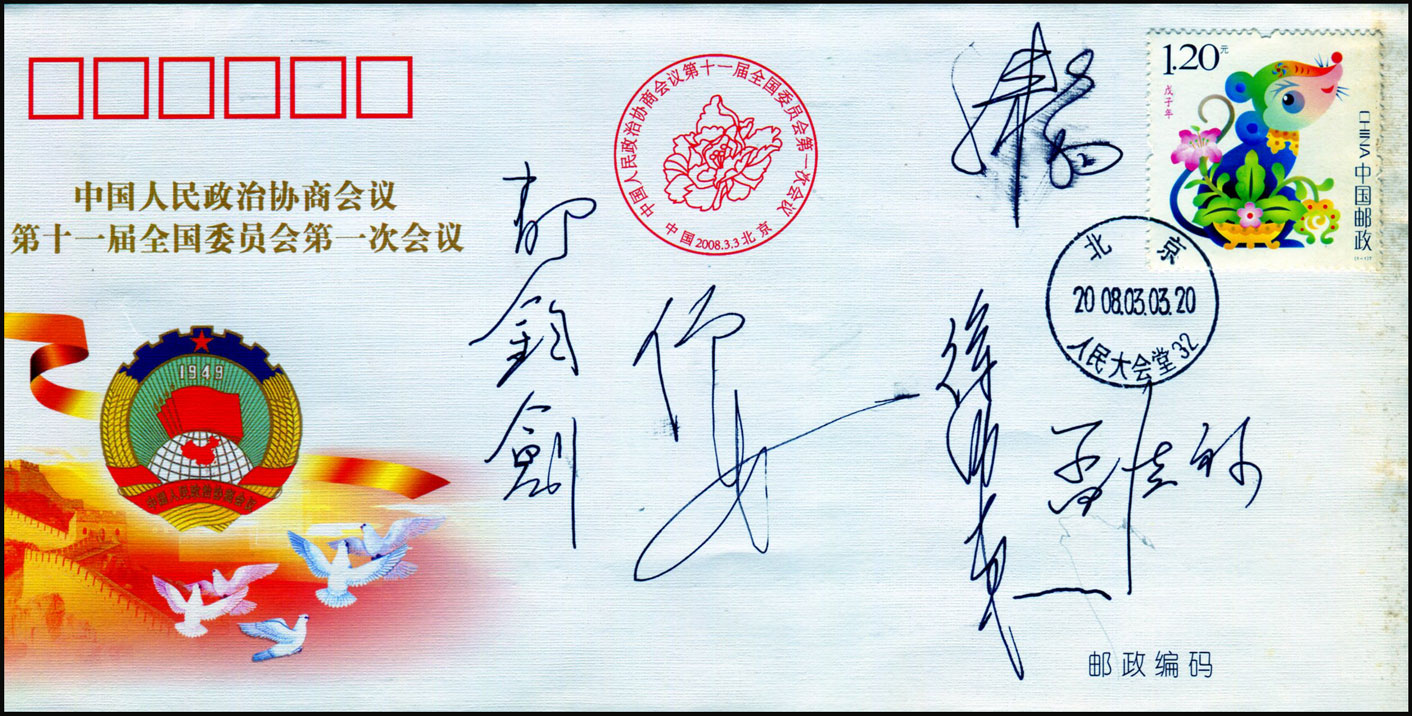 中国人民政治协商会议
第十一届全国委员会第一次会议
1949
中国人民政治协商会议
中国人民政治协商会议第十一届全国委员会第一次会议
中国2008.3.3北京
郁钧剑
1.20元
戊子年
CHINA 中国邮政
北京
20 08.03.03.20
人民大会堂32
邮政编码